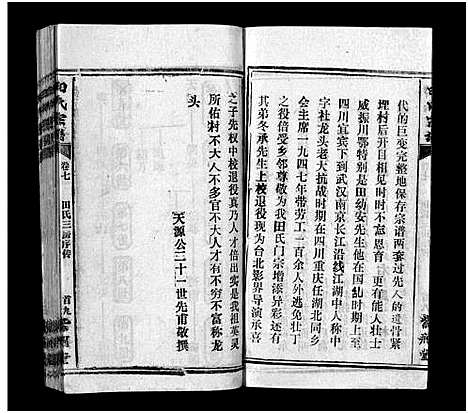 代的巨变完整地保存宗谱两套过先人的遗骨紧
埋村后开目相见时时不忘恩育 更有能人壮士
威振川鄂特别一提的是田幼安先生他在国乱时期上
四川宜宾下到武汉南京长江沿线江湖中人称中
字社龙头老大抗战时期在四川重庆任湖北同乡
会主席一九四七年带劳工一百余人外逃免壮丁
之役倍受乡邻尊敬为我田氏门宗增添异彩还有
其弟冬承先生上校退役现为台北影界导演承喜
之子先权中校退役真乃人才倍出实是我祖英灵
所佑村不大人不多官不大人才有不穷不富称龙
头
天源公二十一世先甫敬撰
田氏宗谱
卷七
田氏三房序传
首九
紫荆堂